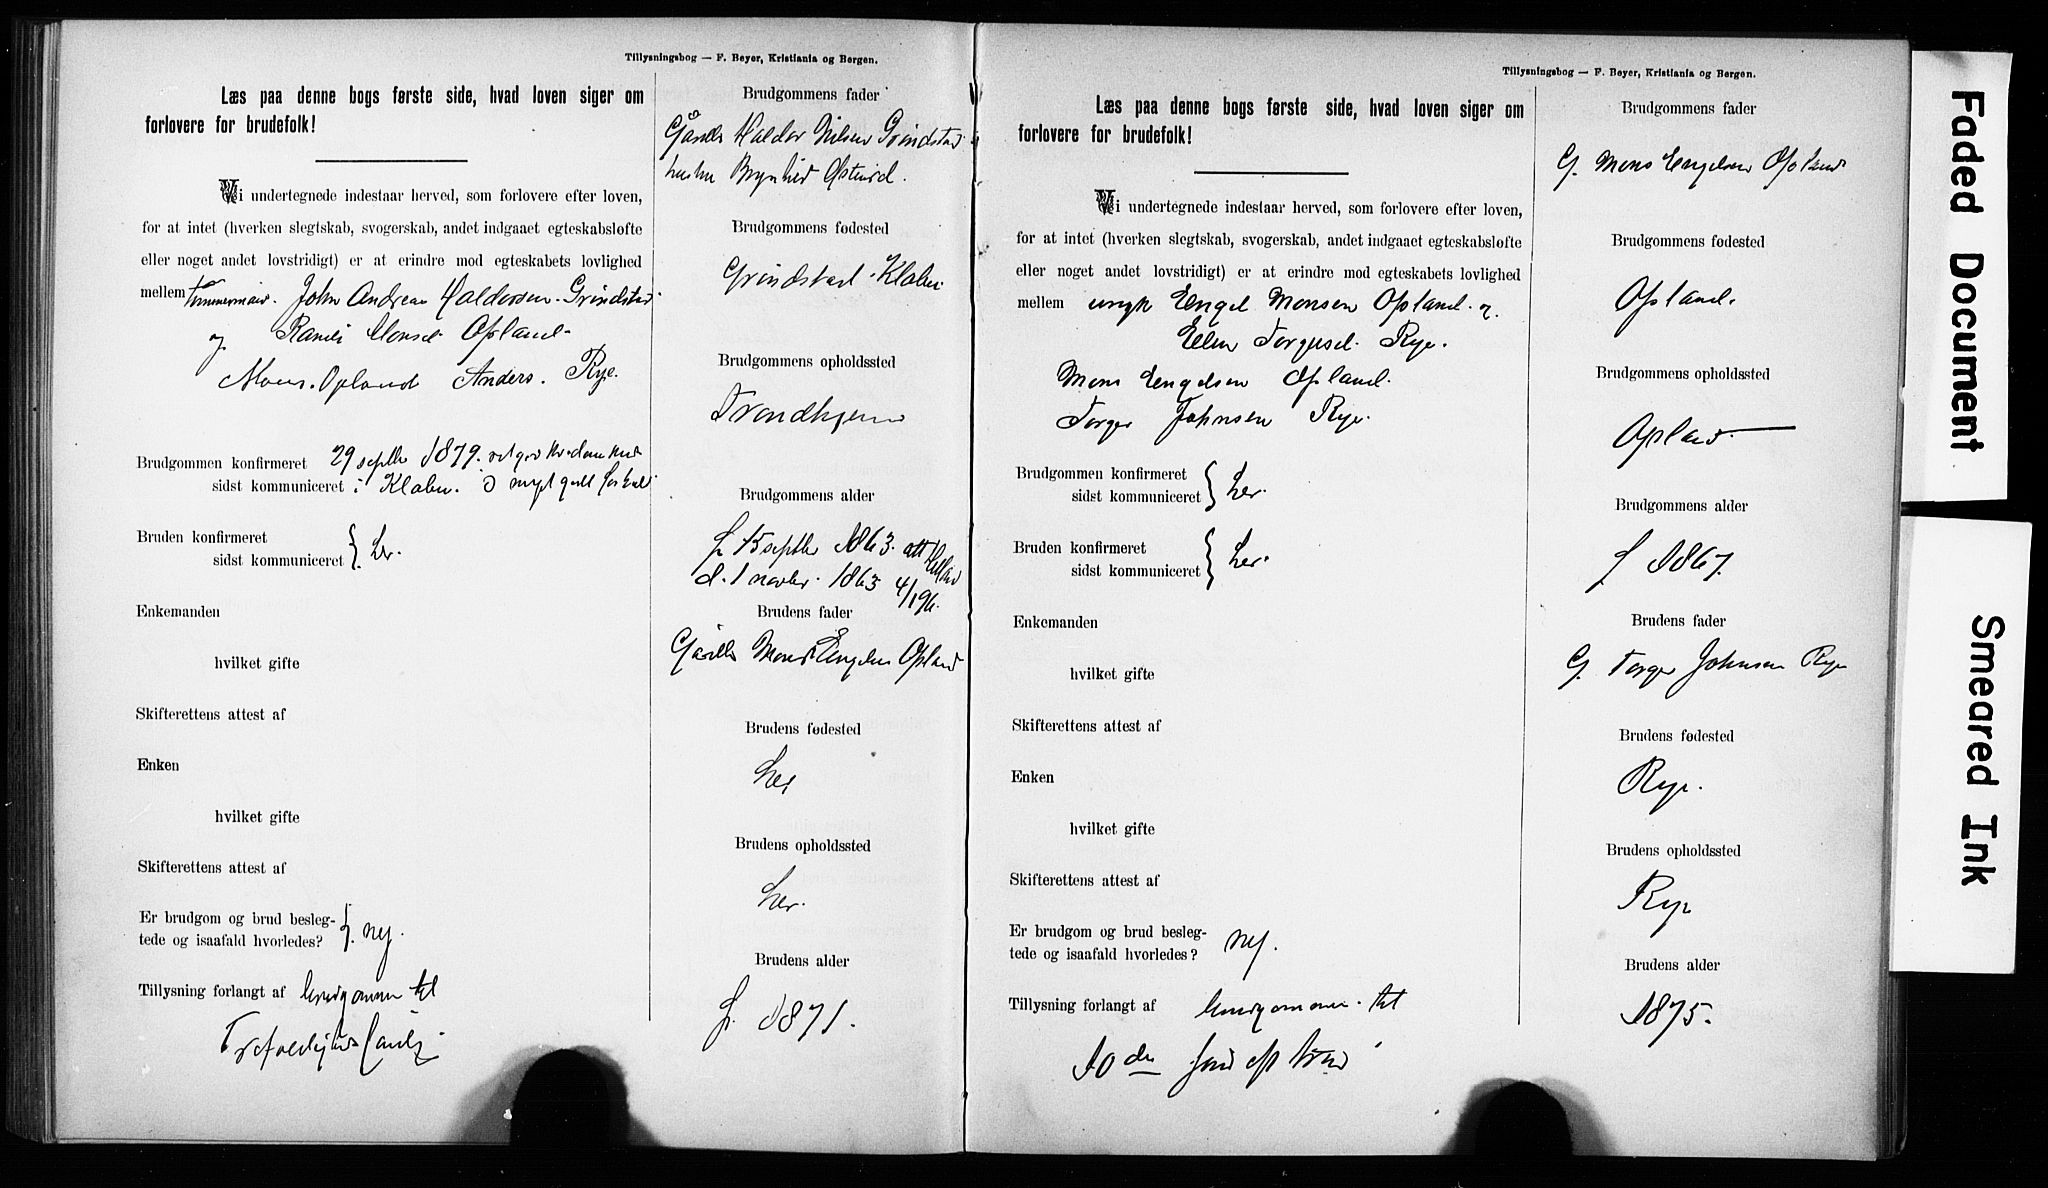 Tillysningsbog — F. Beyer, Kristiania og Bergen.
Læs paa denne bogs første side, hvad loven siger om
forlovere for brudefolk!
Vi undertegnede indestaar herved, som forlovere efter loven,
for at intet (hverken slegtskab, svogerskab, andet indgaaet egteskabsløfte
eller noget andet lovstridigt) er at erindre mod egteskabets lovlighed
mellem Tømmermand. John Andreas Haldorsen Grindstad
og Randi Monsd. Opland.
Mons. Opland Anders. Rye.
Brudgommen konfirmeret 29 septbr 1879.
sidst kommuniceret i Klæbu. meget godt
Bruden konfirmeret
sidst kommuniceret } her.
Enkemanden
hvilket gifte
Skifterettens attest af
Enken
hvilket gifte
Skifterettens attest af
Er brudgom og brud besleg-
tede og isaafald hvorledes? } nej.
Tillysning forlangt af brudgommen til
Brudgommens fader
Gårdbr Haldor Nilsen Grindstad
hustru Brynhild
Brudgommens fødested
Grindstad. Klæbu
Brudgommens opholdssted
Trondhjem
Brudgommens alder
f. 15 septbr 1863. att
d. 1 novbr. 1863 4/1 96.
Brudens fader
Gårdbr Mons Engelsen Opland
Brudens fødested
her
Brudens opholdssted
her.
Brudens alder
f. 1871.
Tillysningsbog — F. Beyer, Kristiania og Bergen.
Læs paa denne bogs første side, hvad loven siger om
forlovere for brudefolk!
Vi undertegnede indestaar herved, som forlovere efter loven,
for at intet (hverken slegtskab, svogerskab, andet indgaaet egteskabsløfte
eller noget andet lovstridigt) er at erindre mod egteskabets lovlighed
mellem ungk Engel Monsen Opland. og
Elen Torgersd. Rye.
Mons Engelsen Opland.
Torger Johnsen Rye.
Brudgommen konfirmeret
sidst kommuniceret } her.
Bruden konfirmeret
sidst kommuniceret } her.
Enkemanden
hvilket gifte
Skifterettens attest af
Enken
hvilket gifte
Skifterettens attest af
Er brudgom og brud besleg-
tede og isaafald hvorledes? nej.
Tillysning forlangt af brudgommen. til
10de
Brudgommens fader
G. Mons Engelsen Opland
Brudgommens fødested
Opland.
Brudgommens opholdssted
Opland
Brudgommens alder
f 1867.
Brudens fader
G. Torger Johnsen Rye
Brudens fødested
Rye.
Brudens opholdssted
Rye
Brudens alder
1875.
Faded Document
Smeared Ink